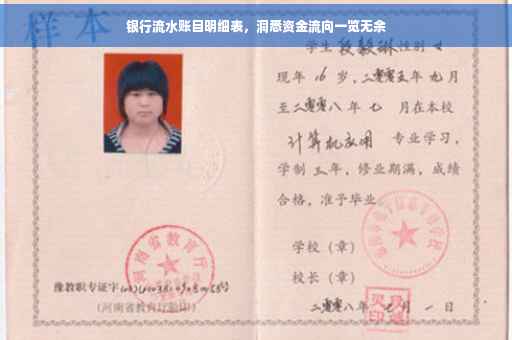 银行流水账目明细表，洞悉资金流向一览无余
样本
学生段毅琳性别 女
现年 16 岁，二零零五年 九月
至二零零八 年 七 月在本校
计算机应用 专业学习，
学制 三 年，修业期满，成绩
合格，准予毕业
学校（章）
校长（章）
二零零八年 七 月 一 日
河南省教育厅
豫教职专证字
（河南省教育厅验印）